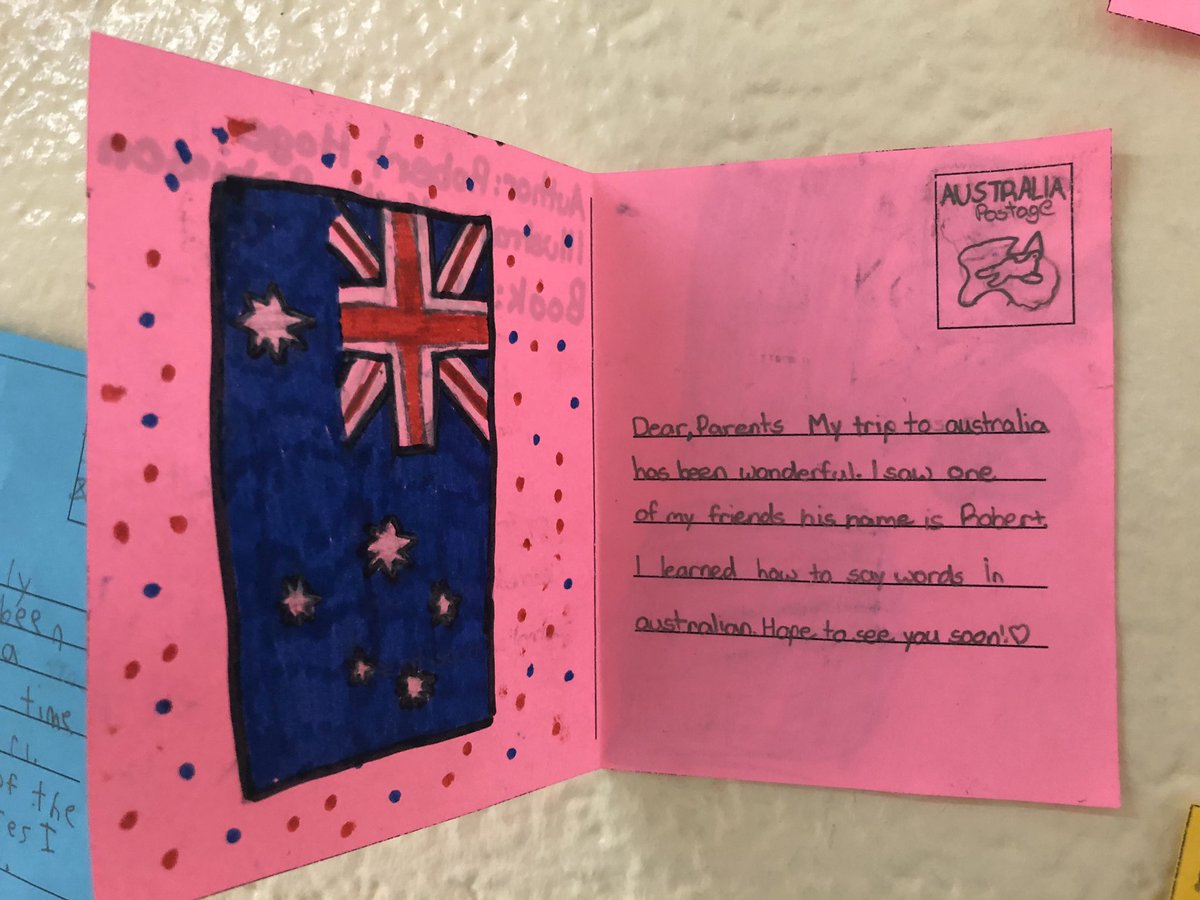 AUSTRALIA
Postage
Dear, Parents My trip to australia
has been wonderful. I saw one
of my friends his name is Robert.
I learned how to say words in
australian. Hope to see you soon!♡
Author: Robert Hoge
Book:
ly
been
a
time
of the
I